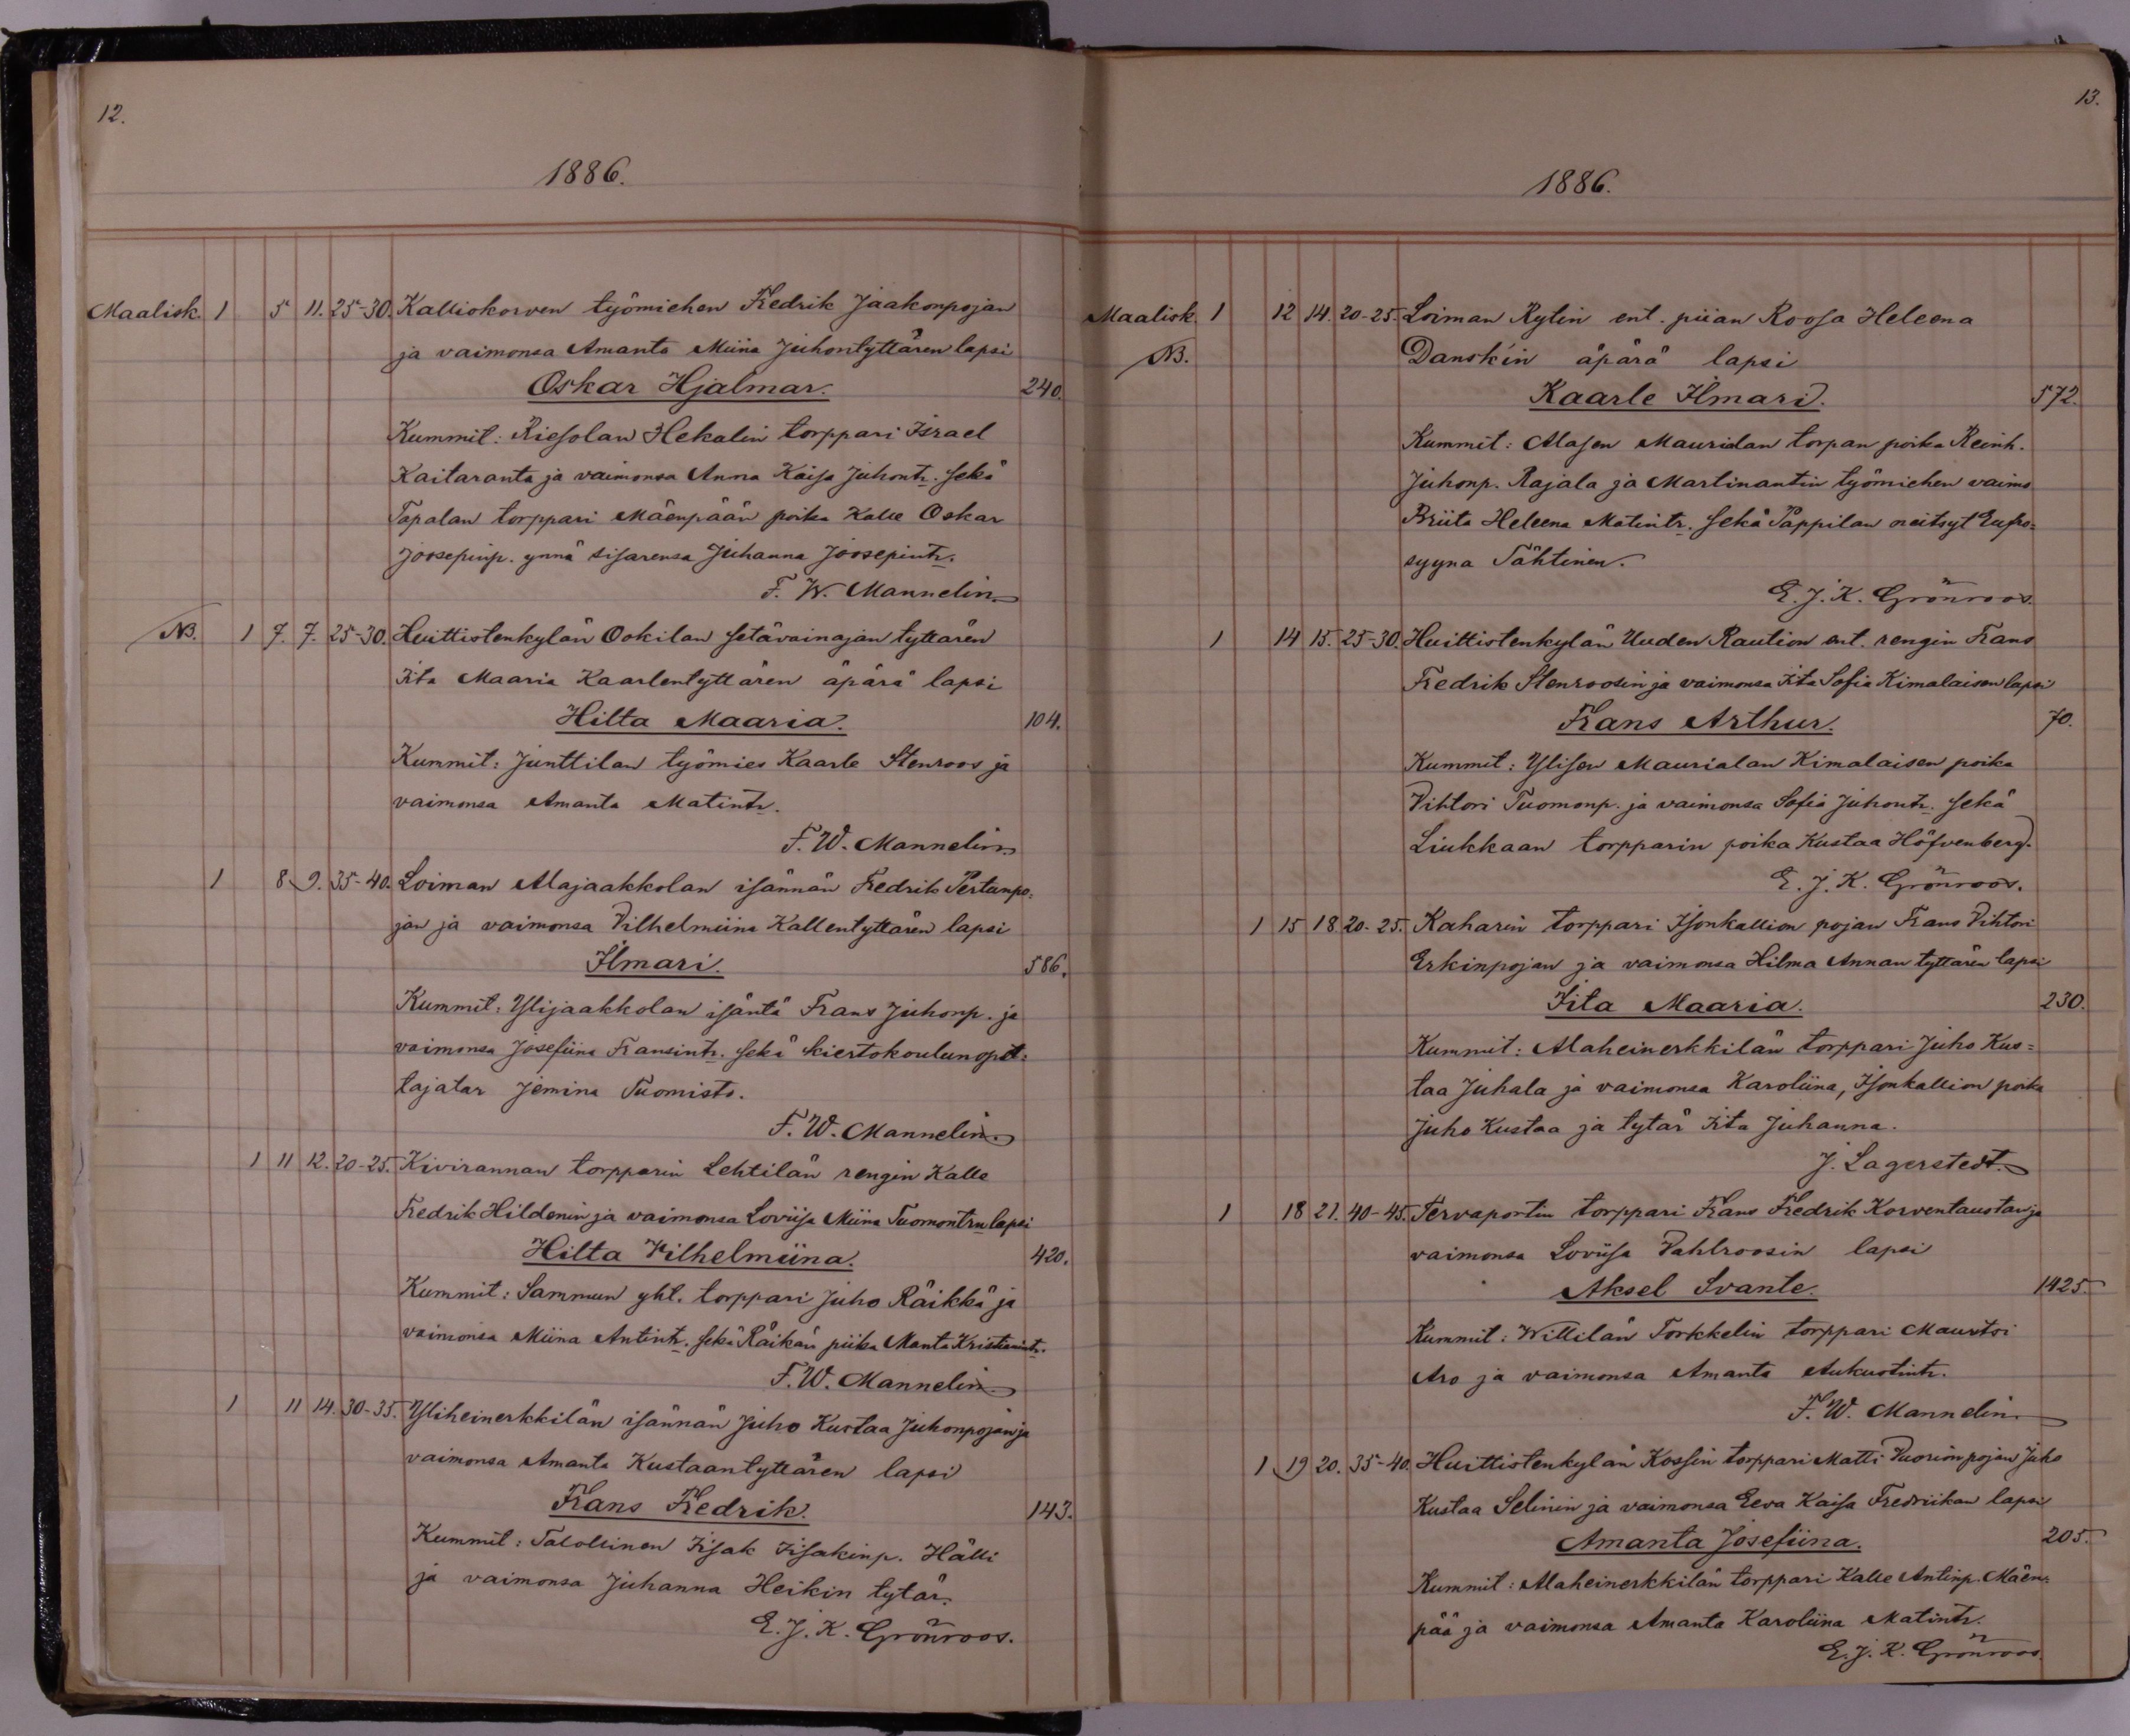 12.
1886.
Maalisk. 1 5 11. 25-30. Kalliokorven työmiehen Fredrik Jaakonpojan
ja vaimonsa Amanta Miina Juhontyttären lapsi
Oskar Hjalmar. 240.
Kummit: Riesolan Hekalin torppari Israel
Kaitaranta ja vaimonsa Anna Kaisa Juhontr. sekä
Tapalan torppari Mäenpään poika Kalle Oskar
Joosepinp. ynnä sisarensa Juhanna Joosepintr.
F. W. Mannelin.
NB. 1 7. 7. 25-30. Huittistenkylän Ookilan setävainajan tyttären
Iita Maaria Kaarlentyttären äpärä lapsi
Hilta Maaria. 104.
Kummit: Junttilan työmies Kaarle Stenroos ja
vaimonsa Amanta Matintr.
F. W. Mannelin.
1 8 9. 35-40. Loiman Alajaakkolan isännän Fredrik Pertunpo=
jan ja vaimonsa Vilhelmiina Kallentyttären lapsi
Ilmari. 586.
Kummit: Ylijaakkolan isäntä Frans Juhonp. ja
vaimonsa Josefiina Fransintr. sekä kiertokoulunopet=
tajatar Jemina Tuomisto.
F. W. Mannelin.
1 11 12. 20-25. Kivirannan torpparin Lehtilän rengin Kalle
Fredrik Hildenin ja vaimonsa Loviisa Miina Tuomontrn lapsi
Hilta Vilhelmiina. 420.
Kummit: Sammun yht. torppari Juho Räikkä ja
vaimonsa Miina Antintr. sekä Räikän piika Manta Kristianintr.
F. W. Mannelin.
1 11 14. 30-35. Yliheinerkkilän isännän Juho Kustaa Juhonpojan ja
vaimonsa Amanta Kustaantyttären lapsi
Frans Fredrik. 143.
Kummit: Talollinen Iisak Iisakinp. Hälli
ja vaimonsa Juhanna Heikin tytär.
E. J. K. Grönroos.
13.
1886.
Maalisk. 1 12 14. 20-25. Loiman Rytin ent. piian Roosa Heleena
NB. Danskin äpärä lapsi
Kaarle Ilmari. 572.
Kummit: Alasen Maurialan torpan poika Reinh.
Juhonp. Rajala ja Martinantin työmiehen vaimo
Briita Heleena Matintr. sekä Pappilan neitsyt Eufro=
syyna Tähtinen.
E. J. K. Grönroos.
1 14 15. 25-30. Huittistenkylän Uuden Raution ent. rengin Frans
Fredrik Stenroosin ja vaimonsa Iita Sofia Kimalaisen lapsi
Frans Arthur. 70.
Kummit: Ylisen Maurialan Kimalaisen poika
Vihtori Tuomonp. ja vaimonsa Sofia Juhontr. sekä
Liukkaan torpparin poika Kustaa Höfvenberg.
E. J. K. Grönroos.
1 15 18 20-25. Kaharin torppari Isonkallion pojan Frans Vihtori
Erkinpojan ja vaimonsa Hilma Annan tyttären lapsi
Iita Maaria. 230.
Kummit: Alaheinerkkilän torppari Juho Kus=
taa Juhala ja vaimonsa Karoliina, Isonkallion poika
Juho Kustaa ja tytär Iita Juhanna.
J. Lagerstedt.
1 18 21. 40-45. Tervaportin torppari Frans Fredrik Korventaustan ja
vaimonsa Loviisa Vahlroosin lapsi
Aksel Svante. 1425.
Kummit: Willilän Torkkelin torppari Mauritsi
Aro ja vaimonsa Amanta Aukustintr.
F. W. Mannelin.
1 19 20. 35-40. Huittistenkylän Kossin torppari Matti Vuorion pojan Juho
Kustaa Selinin ja vaimonsa Eeva Kaisa Fredriikan lapsi
Amanta Josefiina. 205.
Kummit: Alaheinerkkilän torppari Kalle Antinp. Mäen=
pää ja vaimonsa Amanta Karoliina Matintr.
E. J. K. Grönroos.